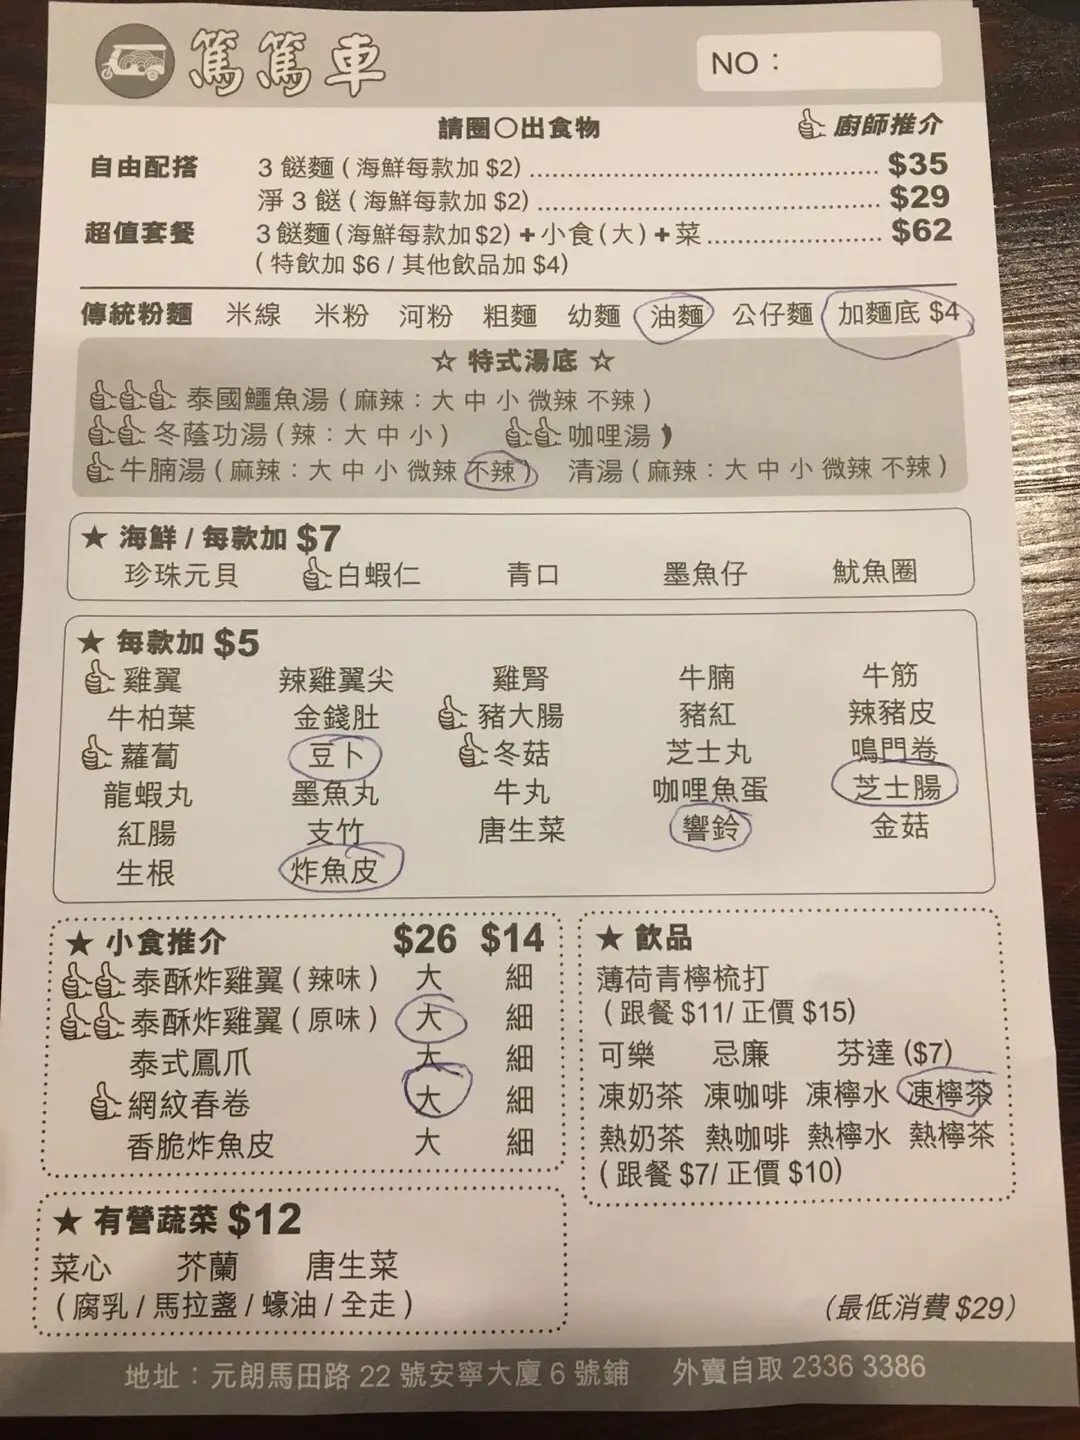 篤篤車
NO：
請圈○出食物 廚師推介
自由配搭 3餸麵(海鮮每款加$2)........ $35
淨3餸(海鮮每款加$2)........ $29
超值套餐 3餸麵(海鮮每款加$2)+小食(大)+菜........ $62
(特飲加$6/其他飲品加$4)
傳統粉麵 米線 米粉 河粉 粗麵 幼麵 油麵 公仔麵 加麵底 $4
☆ 特式湯底 ☆
泰國鱷魚湯(麻辣：大 中 小 微辣 不辣)
冬蔭功湯(辣：大 中 小) 咖哩湯
牛腩湯(麻辣：大 中 小 微辣 不辣) 清湯(麻辣：大 中 小 微辣 不辣)
★ 海鮮/每款加 $7
珍珠元貝 白蝦仁 青口 墨魚仔 魷魚圈
★ 每款加 $5
雞翼 辣雞翼尖 雞腎 牛腩 牛筋
牛柏葉 金錢肚 豬大腸 豬紅 辣豬皮
蘿蔔 豆卜 冬菇 芝士丸 鳴門卷
龍蝦丸 墨魚丸 牛丸 咖哩魚蛋 芝士腸
紅腸 支竹 唐生菜 響鈴 金菇
生根 炸魚皮
★ 小食推介 $26 $14
泰酥炸雞翼(辣味) 大 細
泰酥炸雞翼(原味) 大 細
泰式鳳爪 大 細
網紋春卷 大 細
香脆炸魚皮 大 細
★ 飲品
薄荷青檸梳打
(跟餐 $11/ 正價 $15)
可樂 忌廉 芬達 ($7)
凍奶茶 凍咖啡 凍檸水 凍檸茶
熱奶茶 熱咖啡 熱檸水 熱檸茶
(跟餐 $7/ 正價 $10)
★ 有營蔬菜 $12
菜心 芥蘭 唐生菜
(腐乳/馬拉盞/蠔油/全走)
(最低消費 $29)
地址：元朗馬田路 22 號安寧大廈 6 號鋪 外賣自取 2336 3386